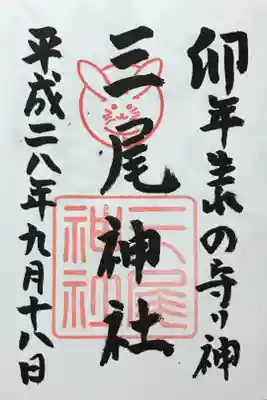 卯年生れの守り神
三尾神社
平成二八年九月十八日
三尾神社